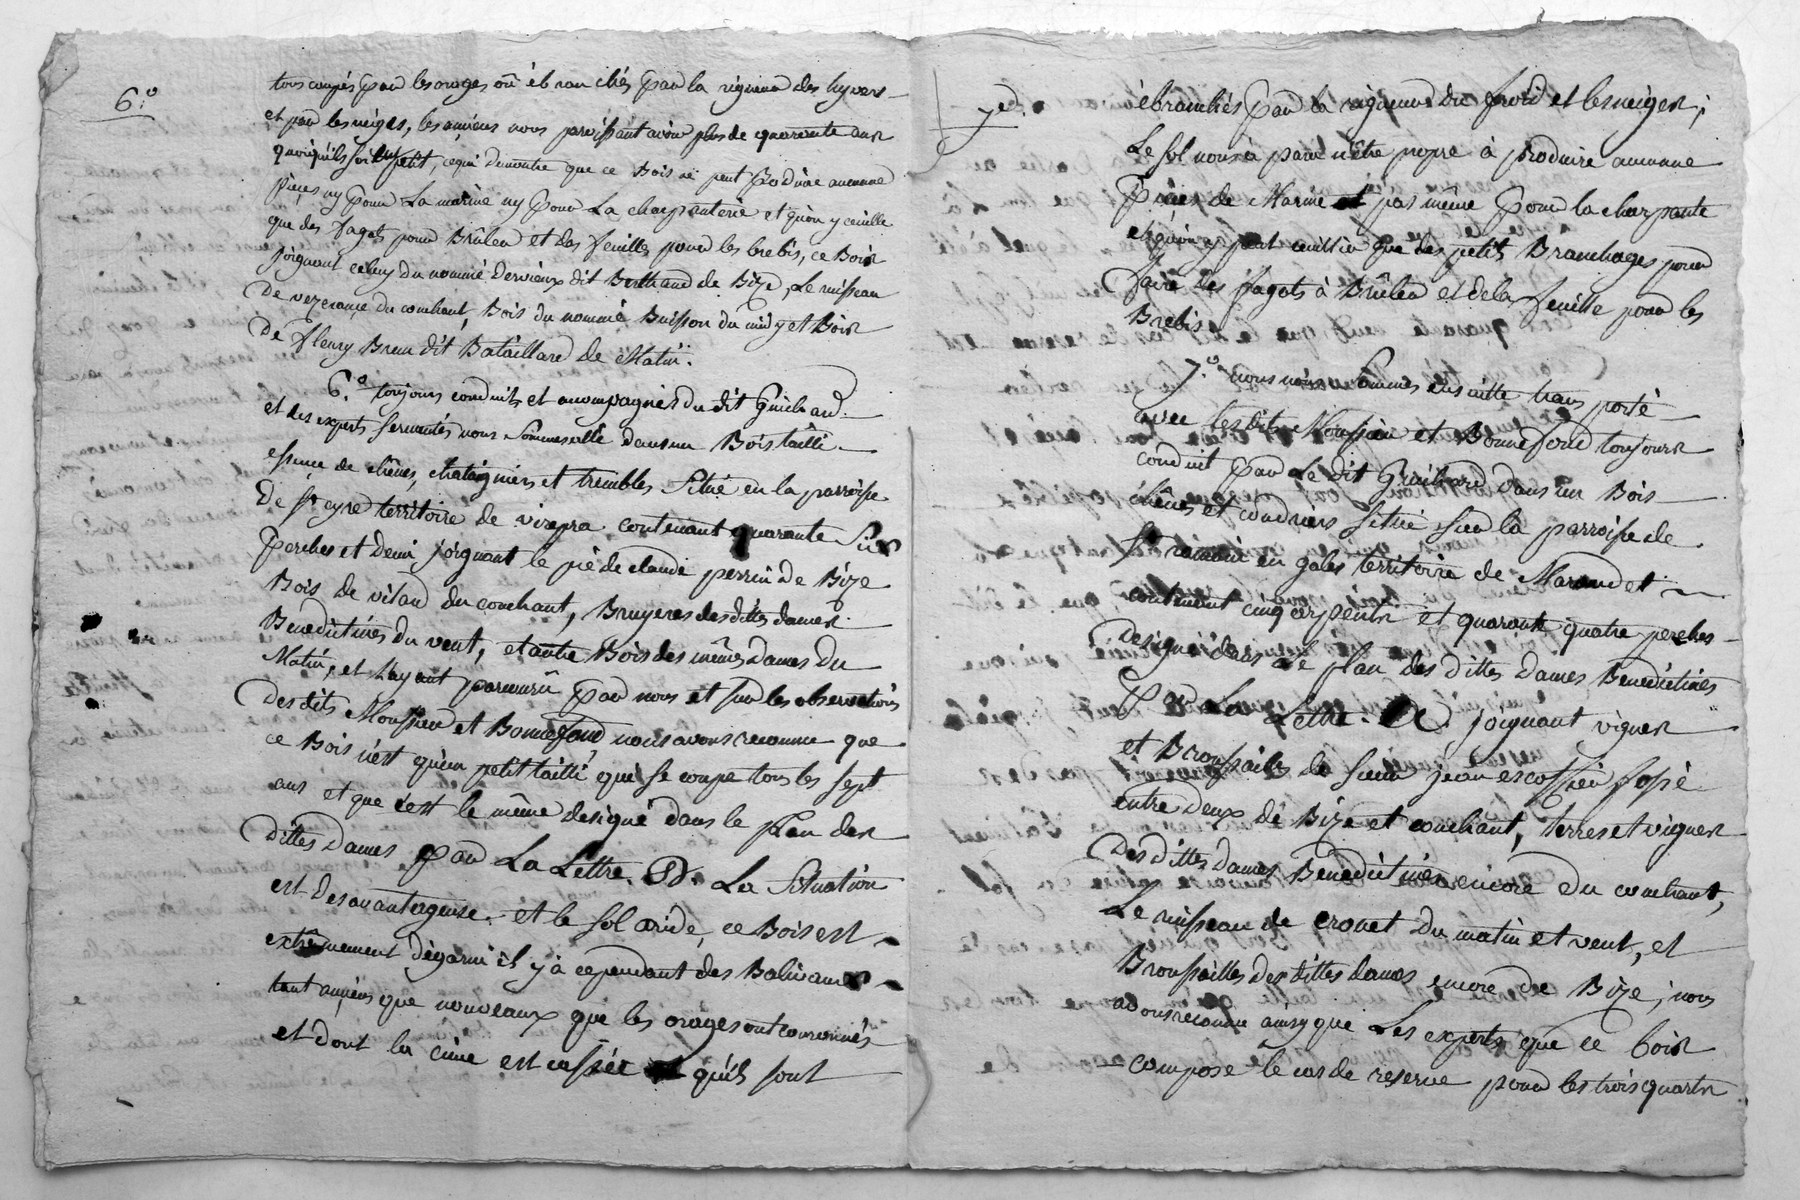 6.º
tous coupés par les orages où ébranchés par la rigueur des hyvers
et par les neiges, les anciens nous paroissant avoir plus de quarante ans
quoiqu'ils soit petit, ce qui demontre que ce Bois ne peut produire aucunne
pièces ny pour La marine ny pour La charpenterie et qu'on y ceuille
que des fagots pour Brûler et des feuilles pour les brebis, ce Bois
joignant celuy du nommé dervieux dit Berthaud de Bize, Le ruisseau
de vezerance du couchant, Bois du nommé Buisson du midy et Bois
de fleury Brun dit Bataillard de Matin.
6.º toujours conduits et accompagnés du dit Guichard
et des experts sermentés nous sommes allé dans un Bois taillé
essence de chênes, chataigniers et trembles situé en la parroisse
de st cyr territoire de virepra contenant quarante six
perches et demi joignant le pré de claude perrin de Bize
Bois de vilard du couchant, Bruyeres des dittes dames
Benedictines du vent, et autre Bois des mêmes Dames du
Matin, et L'ayant parcouru par nous et sur les observations
des dits Moussieu et Bonnefond nous avons reconnu que
ce Bois n'est qu'un petit taillé qui se coupe tous les sept
ans et que c'est le même designé dans le plan des
dittes Dames par La Lettre D. La Situation
est desavantageuse et le sol aride, ce Bois est
extrêmement dégarni il y à cependant des Balivaux
tant anciens que nouveaux que les orages ont couronnés
et dont la cime est cassée et qu'ils sont
7e.
ébranchés par la rigueur du froid et les neiges;
Le sol nous à paru n'être propre à produire aucunne
pièces de Marine et pas même pour la charpente
et qu'on y peut cuillir que des petits Branchages pour
faire des fagots à Brûler et de la feuille pour les
Brebis.
7.º nous nous sommes ensuitte transporté
avec les dits Moussieu et Bonnefond toujours
conduit par Le dit Guichard dans un Bois
chênes et coudriers situé sur la parroisse de
st romain en gales territoire de Marandet
contenant cinq arpents et quarante quatre perches
designé dans Le plan des dittes Dames Benedictines
Par La Lettre. A. joignant vignes
et Broussailles de sieur jean escoffier fossé
entre deux de Bize et couchant, terres et vignes
des dittes dames Benedictines encore du couchant,
Le ruisseau de crouet du matin et vent, et
Broussailles des dittes dames encore de Bize; nous
avons reconnu ainsy que Les experts que ce bois
compose le cas de reserve pour les trois quarts